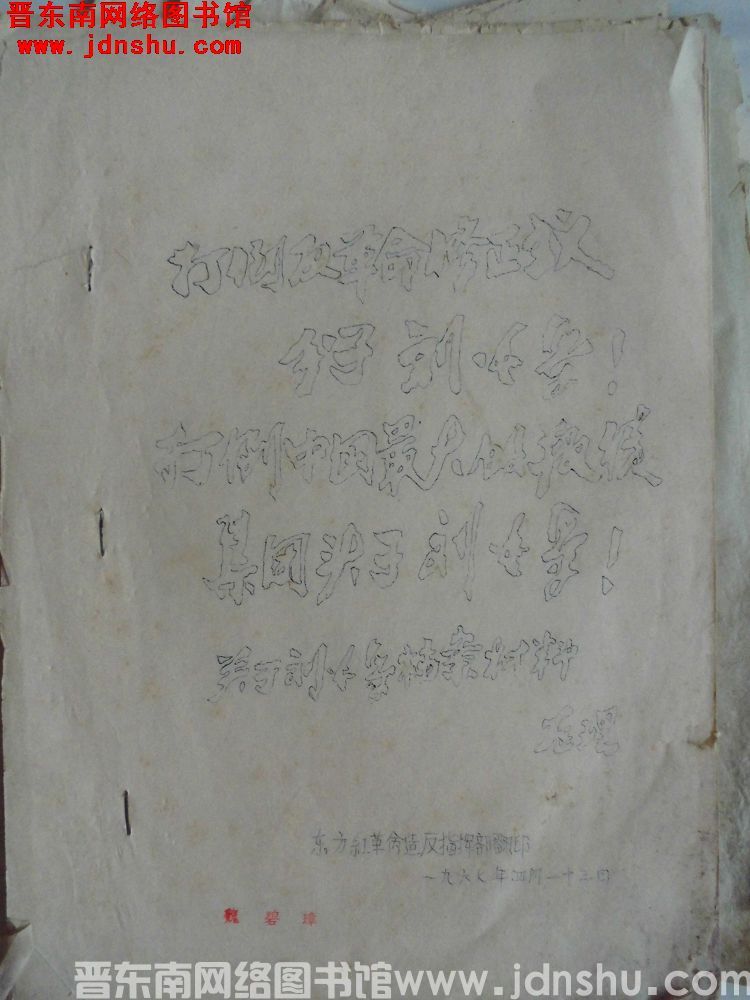 晋东南网络图书馆
www.jdnshu.com
打倒反革命修正主义
刘少奇！
打倒中国最大的
集团头子刘少奇！
关于刘少奇档案材料
东方红革命造反指挥部翻印
一九六七年四月十三日
魏碧璋
晋东南网络图书馆www.jdnshu.com